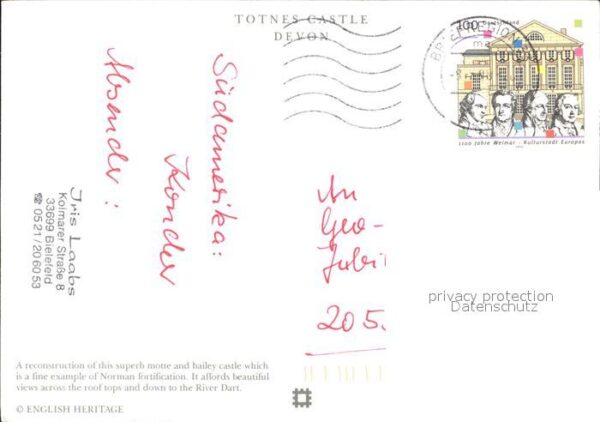 TOTNES CASTLE
DEVON
100 Deutschland
BRIEFREGION
1100 Jahre Weimar · Kulturstadt Europas
Absender:
Südamerika:
Kondor
Iris Laabs
Kolmarer Straße 8
33699 Bielefeld
☎ 0521/206053
An
Geo-
Jubi
205.
privacy protection
Datenschutz
A reconstruction of this superb motte and bailey castle which
is a fine example of Norman fortification. It affords beautiful
views across the roof tops and down to the River Dart.
© ENGLISH HERITAGE